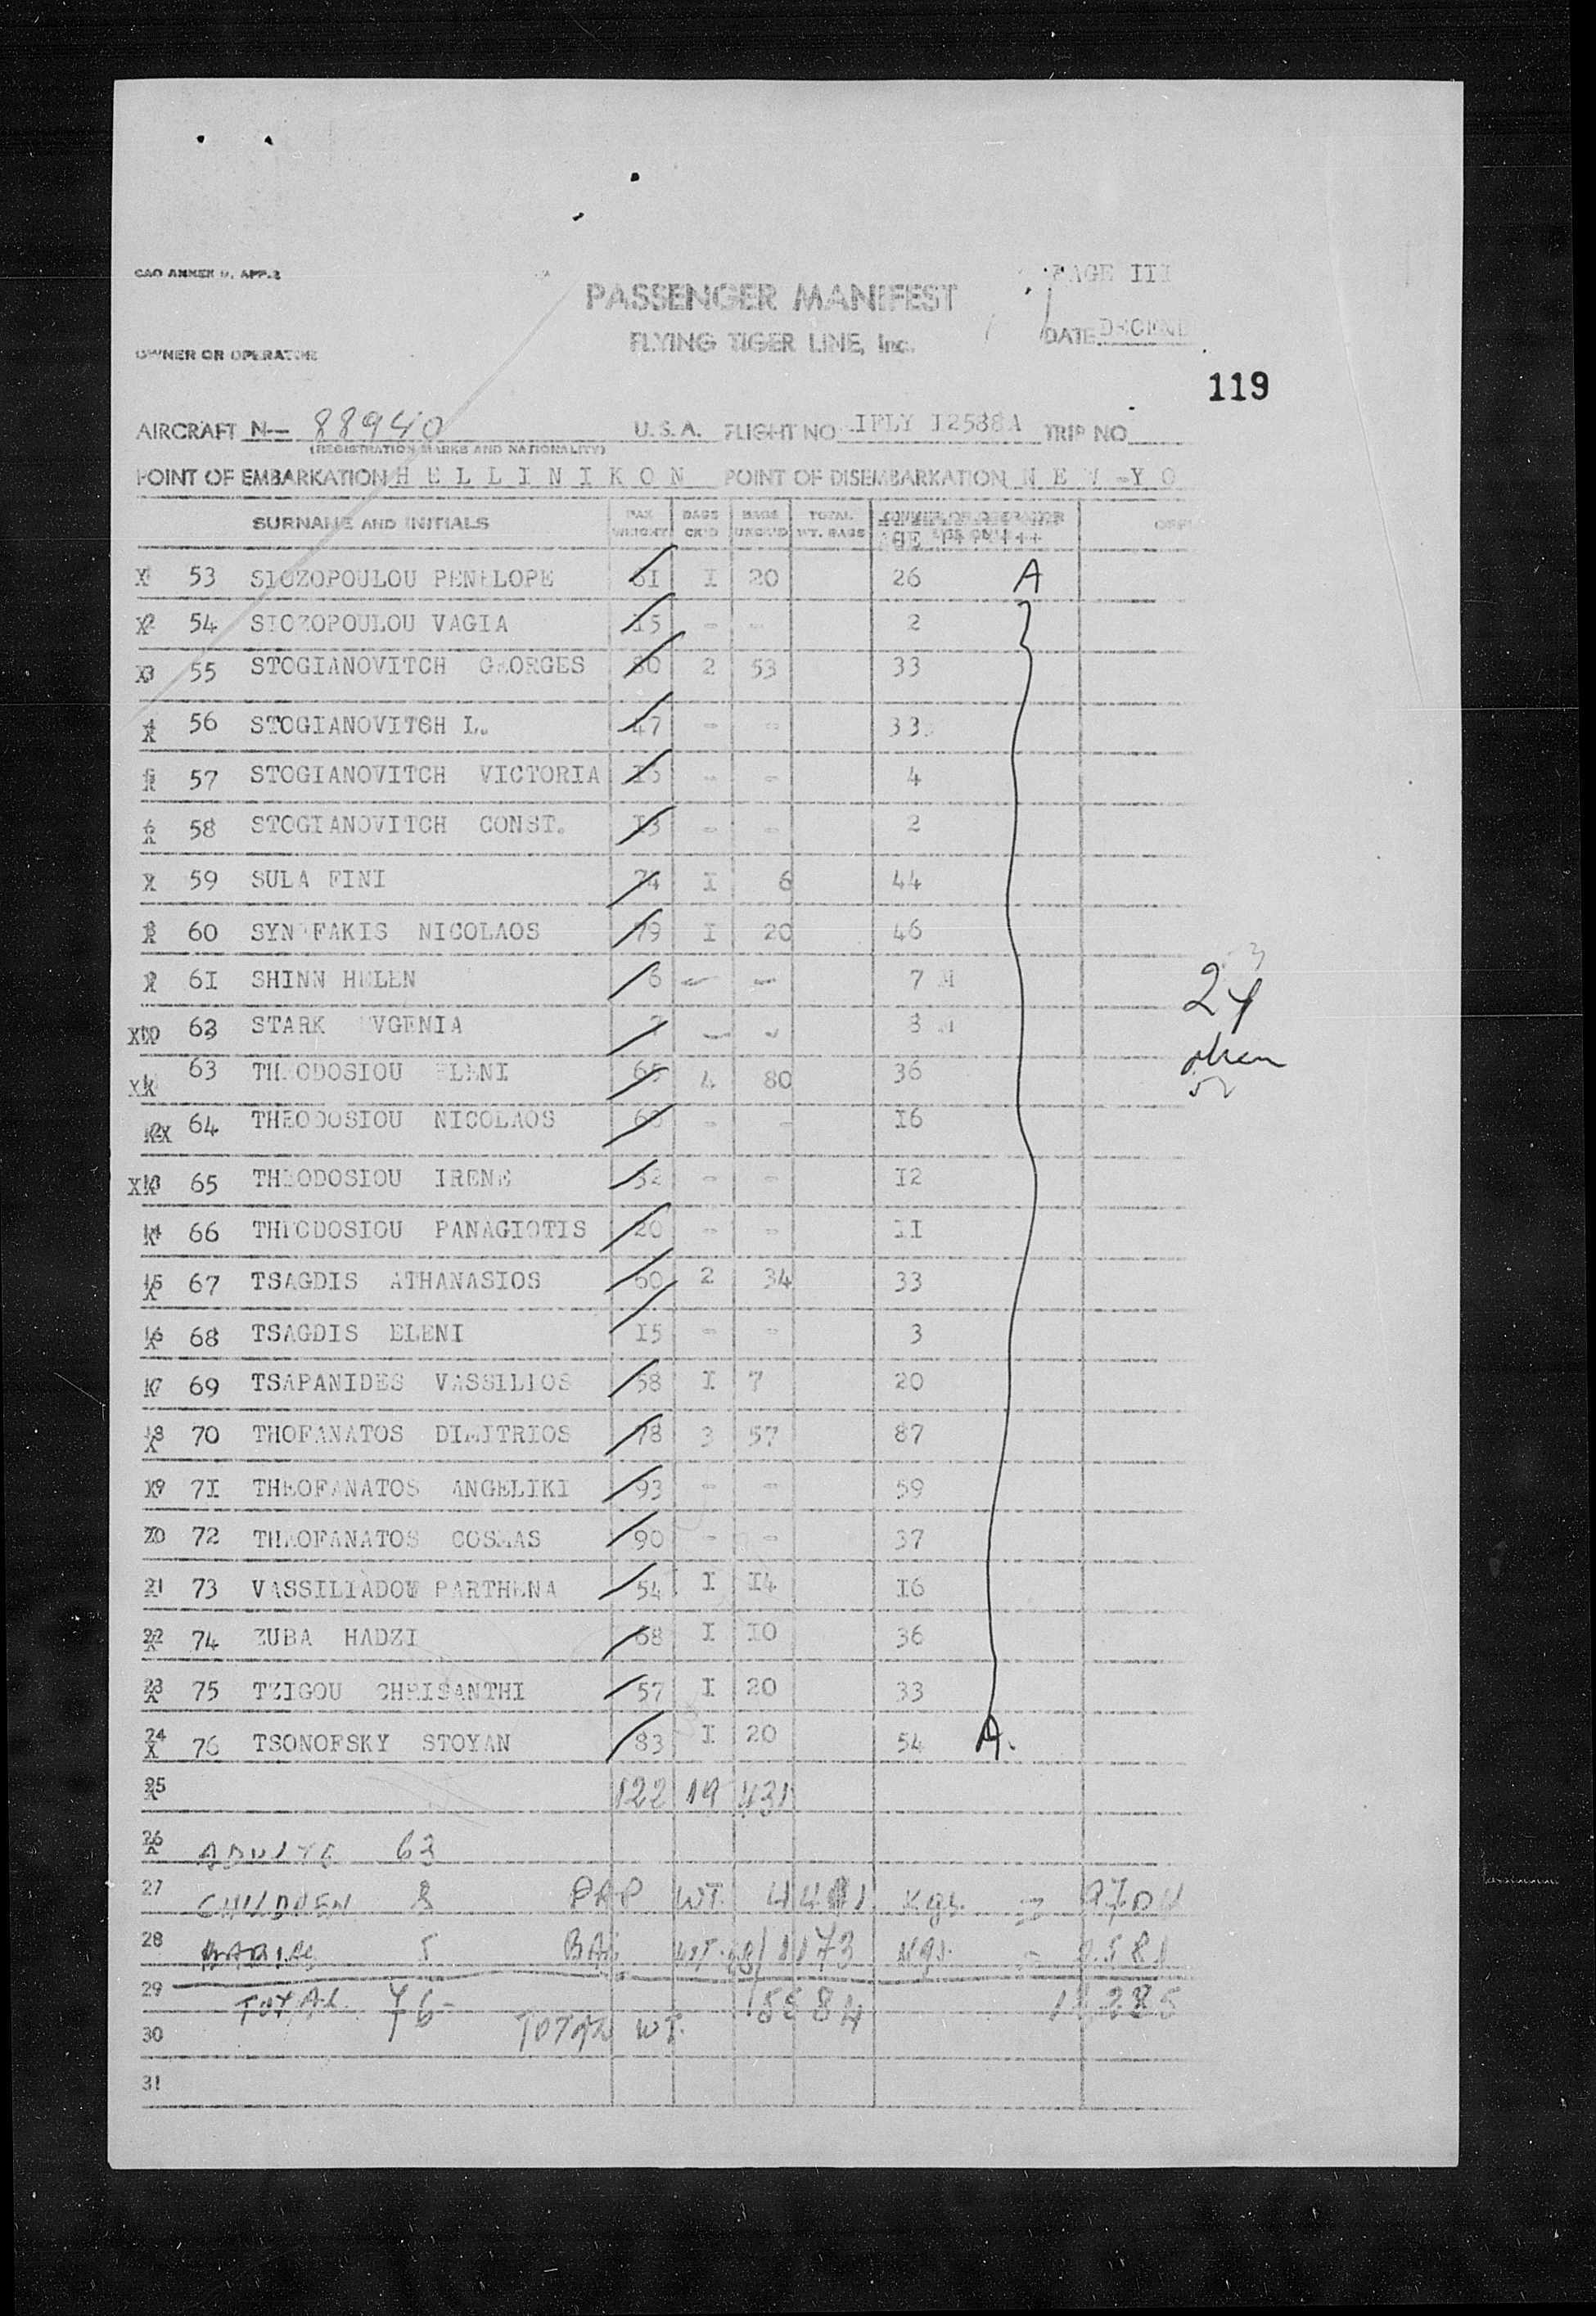 CAO ANNEX 9, APP.2
PAGE III
PASSENGER MANIFEST
DATE DECEMB
FLYING TIGER LINE, Inc.
OWNER OR OPERATOR
119
AIRCRAFT N- 88940 U.S.A. FLIGHT NO. IFLY I2588A TRIP NO
(REGISTRATION MARKS AND NATIONALITY)
POINT OF EMBARKATION H E L L I N I K O N POINT OF DISEMBARKATION N E W -Y O
SURNAME AND INITIALS PAX WEIGHT BAGS CK'D BAGS UNCK'D TOTAL WT. BAGS OWNER OR OPERATOR USE ONLY
53 SIOZOPOULOU PENELOPE 61 I 20 26 A
54 SIOZOPOULOU VAGIA I5 - - 2
55 STOGIANOVITCH GEORGES 80 2 53 33
56 STOGIANOVITSH L. 47 - - 33
57 STOGIANOVITCH VICTORIA I5 - - 4
58 STOGIANOVITCH CONST. I3 - - 2
59 SULA FINI 74 I 6 44
60 SYN FAKIS NICOLAOS 79 I 20 46
6I SHINN HELEN 6 - - 7 M
24
63 STARK EVGENIA 7 - - 3 M
63 THEODOSIOU ELENI 65 4 80 36
64 THEODOSIOU NICOLAOS 63 - - I6
65 THEODOSIOU IRENE 32 - - I2
66 THEODOSIOU PANAGIOTIS 20 - - II
67 TSAGDIS ATHANASIOS 60 2 34 33
68 TSAGDIS ELENI I5 - - 3
69 TSAPANIDES VASSILIOS 58 I 7 20
70 THOFANATOS DIMITRIOS 78 3 57 87
7I THEOFANATOS ANGELIKI 93 - - 59
72 THEOFANATOS COSMAS 90 - - 37
73 VASSILIADOU PARTHENA 54 I I4 I6
74 ZUBA HADZI 68 I I0 36
75 TZIGOU CHRISANTHI 57 I 20 33
76 TSONOFSKY STOYAN 83 I 20 54 A.
25 122 19 431
26 ADULTS 63
27 CHILDREN 8 WT. Kgs. =
28 BABIES 5 BAG WT. 1173 Kgs. =
29 TOTAL 76
30 TOTAL WT.
31